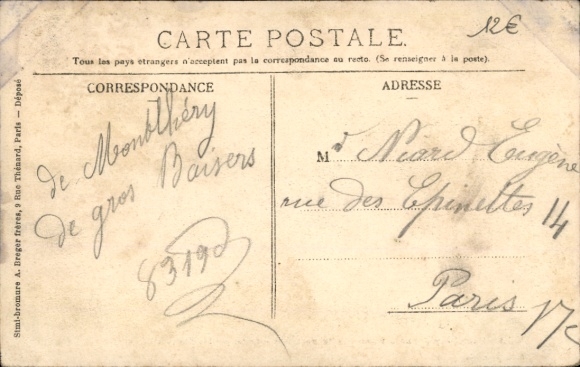 12€
CARTE POSTALE.
Tous les pays étrangers n'acceptent pas la correspondance au recto. (Se renseigner à la poste).
CORRESPONDANCE
de Montlhéry
de gros Baisers
ADRESSE
Md Niard Eugène
rue des Epinettes 14
Paris 17e
Simi-bromure A. Breger frères, 9 Rue Thénard, Paris — Déposé